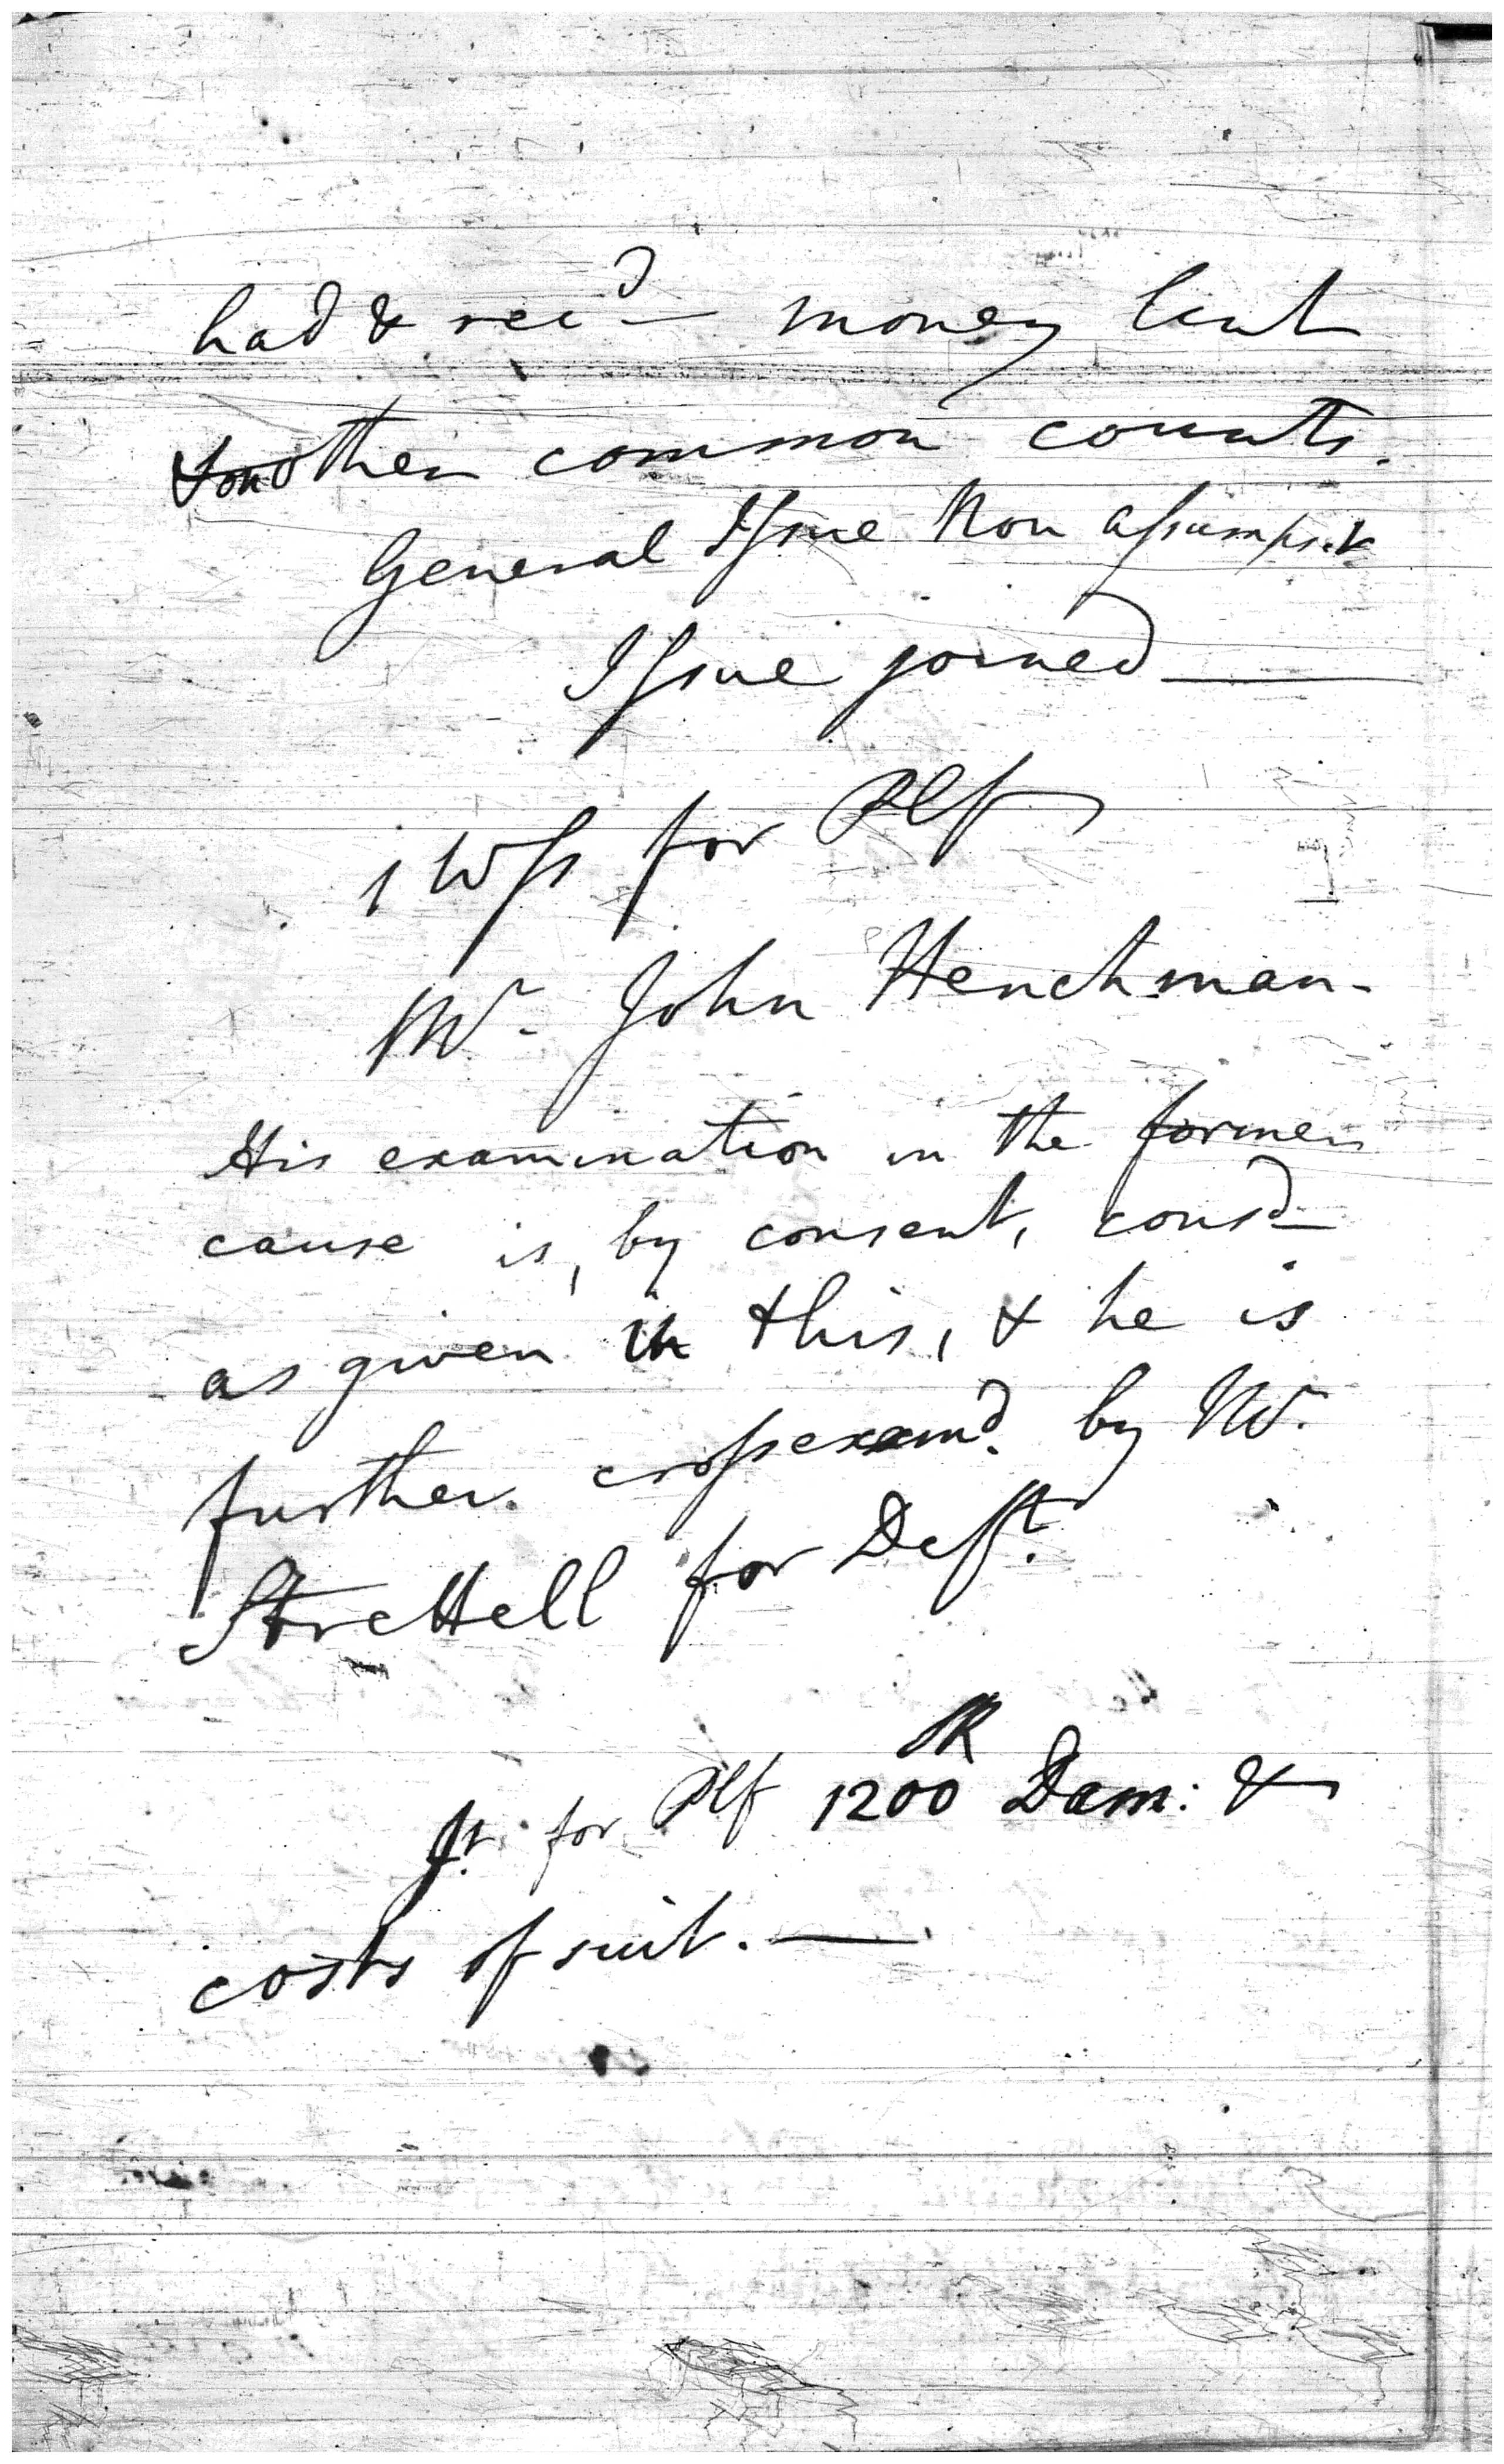 had & recd money lent
& other common counts.
General Issue Non assumpsit
Issue joined —
1 Wss for Plf
Mr. John Henchman.
His examination in the former
cause is, by consent, consd
as given in this, & he is
further crossexamd. by Mr.
Strettell for Deft.
SR
Jt. for Plf 1200 Dam: &
costs of suit. —